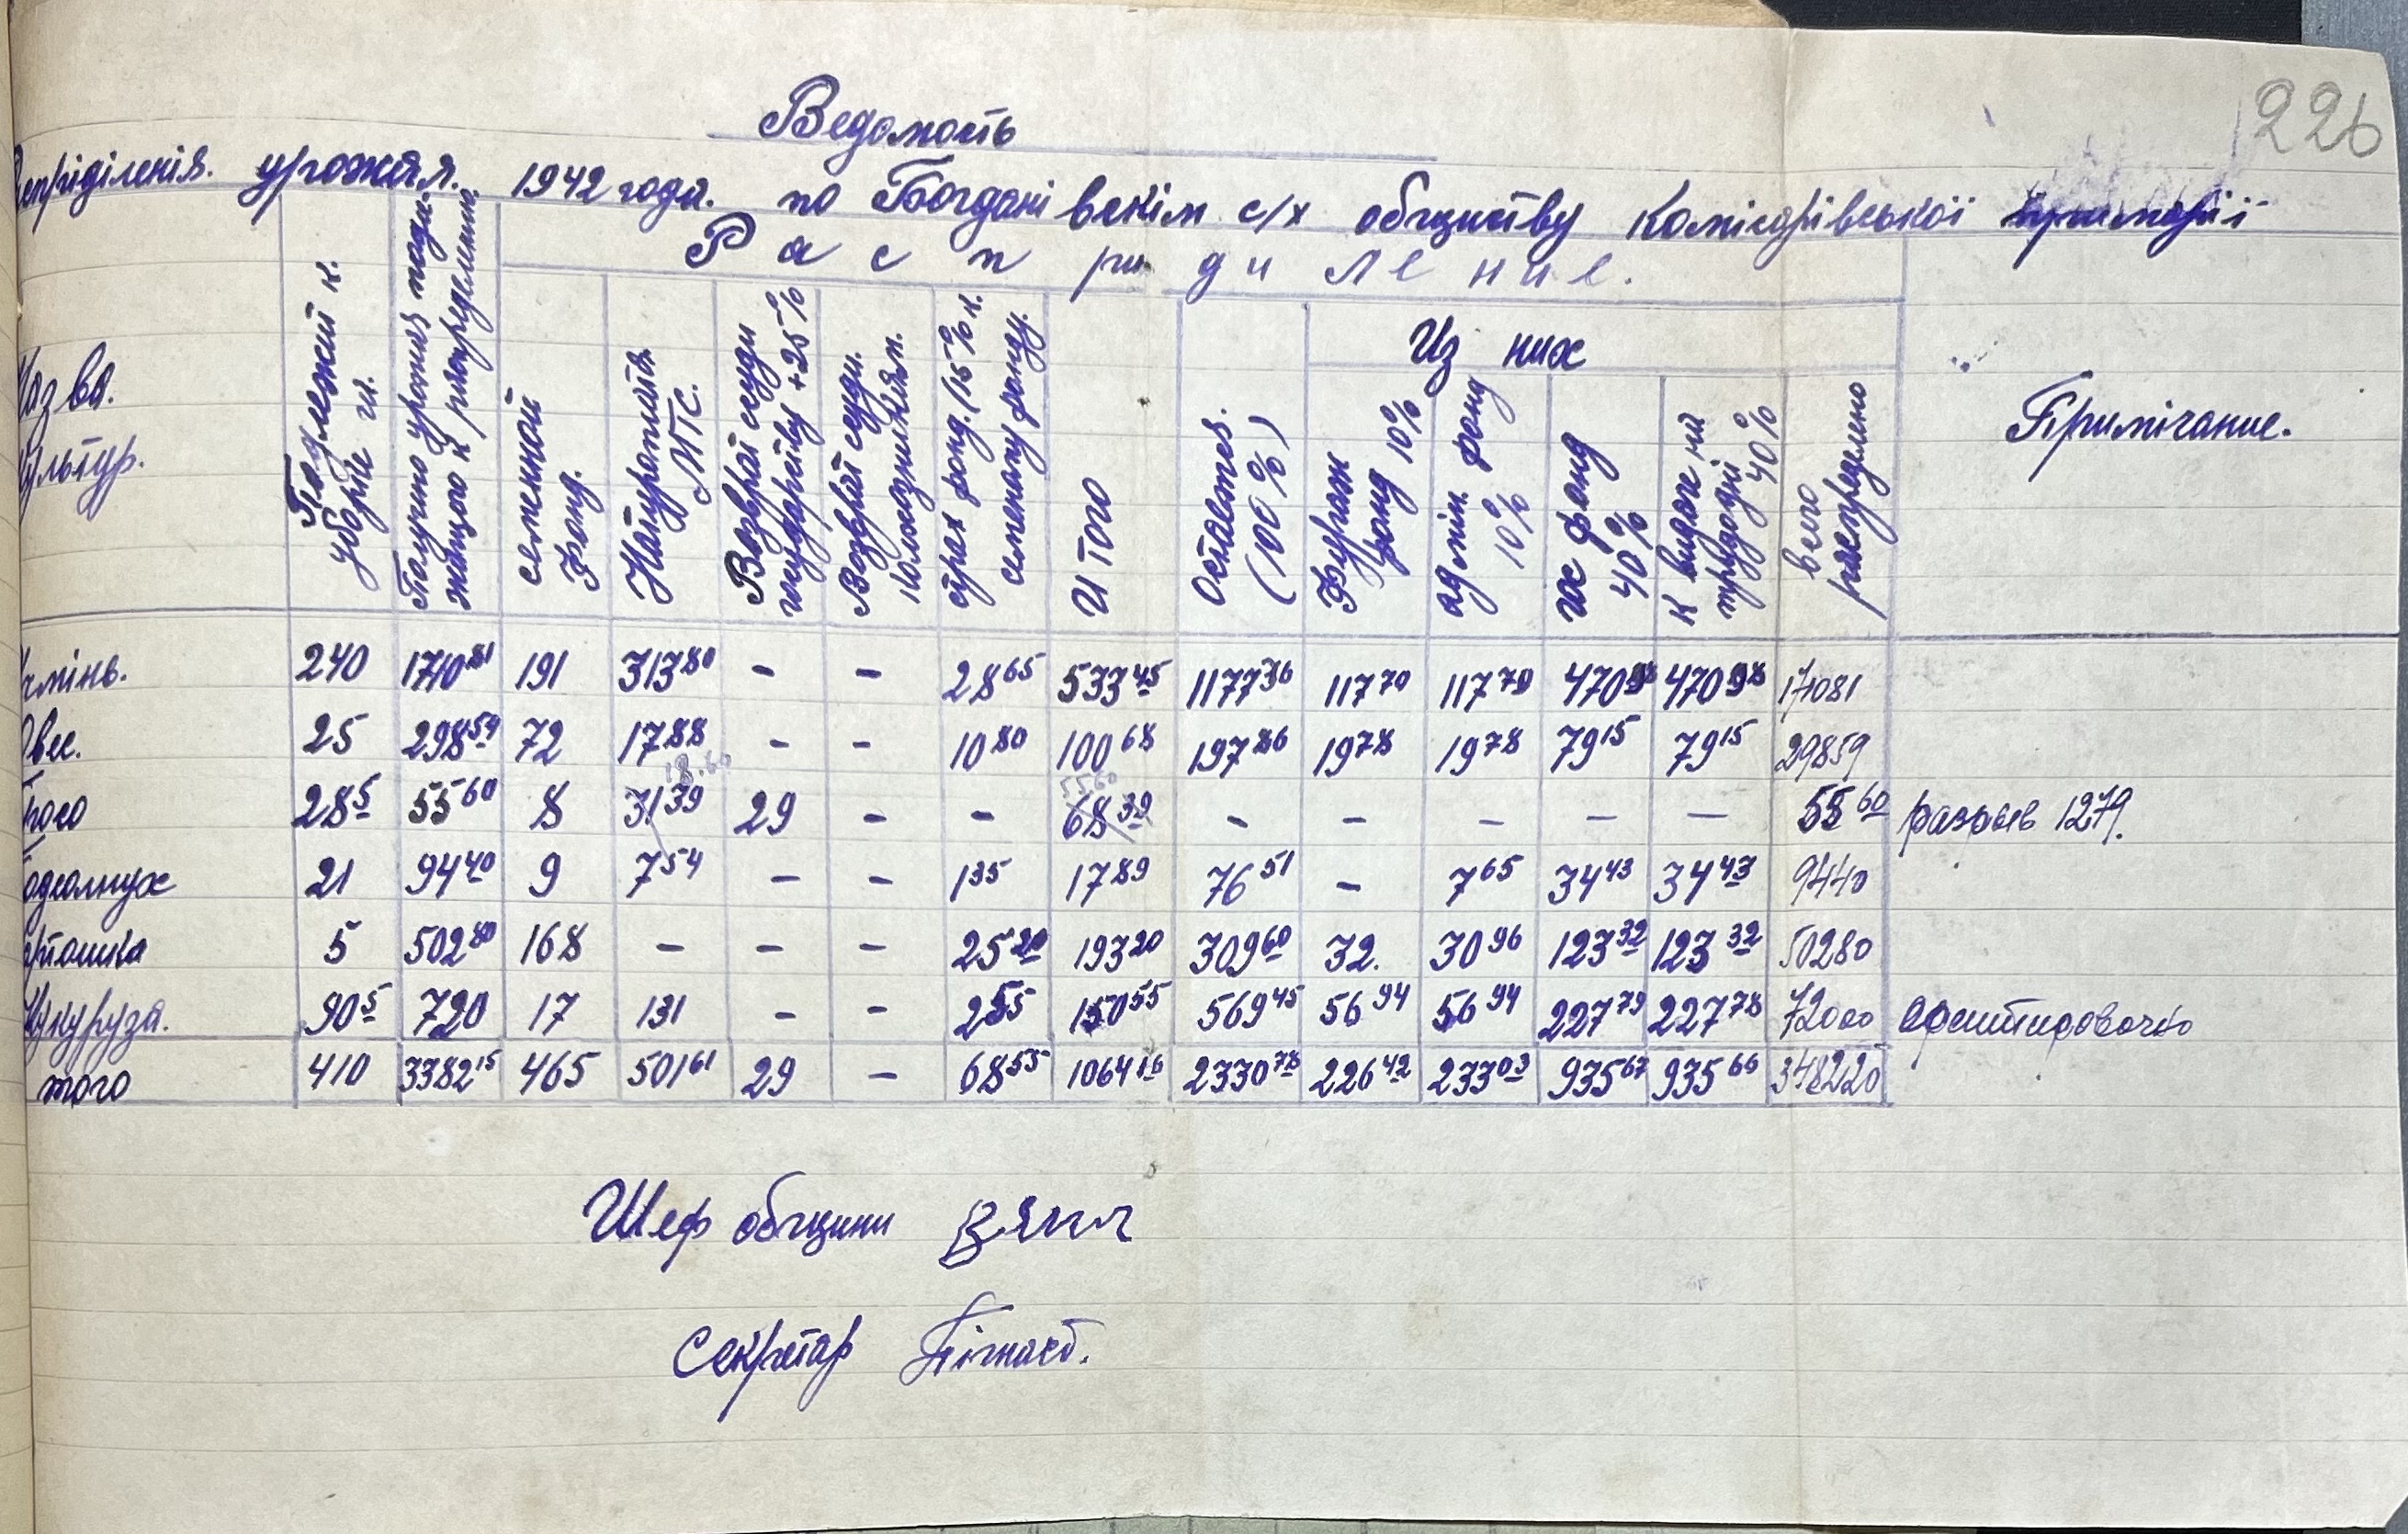 226
Ведомость
урожая. 1942 года. по Богданівскім с/х обществу Комісарівської примарії
Распридиление.
Из них
Назва. культур.
Подлежит к уборке га.
Получено урожая подлежащого к распределению
семенной Фонд.
Натуроплата МТС.
Возврат ссуди государству +25%
Возврат ссуди.
страх фонд. (15% к. семеному фонду.
Итого
Остается. (100%)
Фураж фонд 10%
адмін. фонд 10%
гос фонд 40%
к видаче на трудодні 40%
всего распределено
Примічание.
чмінь. 240 1710 81 191 313 80 - - 28 65 533 45 1177 36 117 70 117 70 470 98 470 98 171081
Овес. 25 298 54 72 17 88 - - 10 80 100 68 197 86 19 78 19 78 79 15 79 15 29859
18.60 55.60
28 5 55 60 8 31 39 29 - - 68 39 - - - - - 55 60 разрыв 1279.
21 94 40 9 7 54 - - 1 35 17 89 76 51 - 7 65 34 43 34 43 9440
5 502 80 168 - - - 25 20 193 20 309 60 32. 30 96 123 32 123 32 50280
Кукуруза. 90 5 720 17 131 - - 2 55 150 55 569 45 56 94 56 94 227 79 227 78 72000
того 410 3382 15 465 501 61 29 - 68 55 1064 16 2330 78 226 42 233 03 935 67 935 66 348220
Шеф общини
Секретар